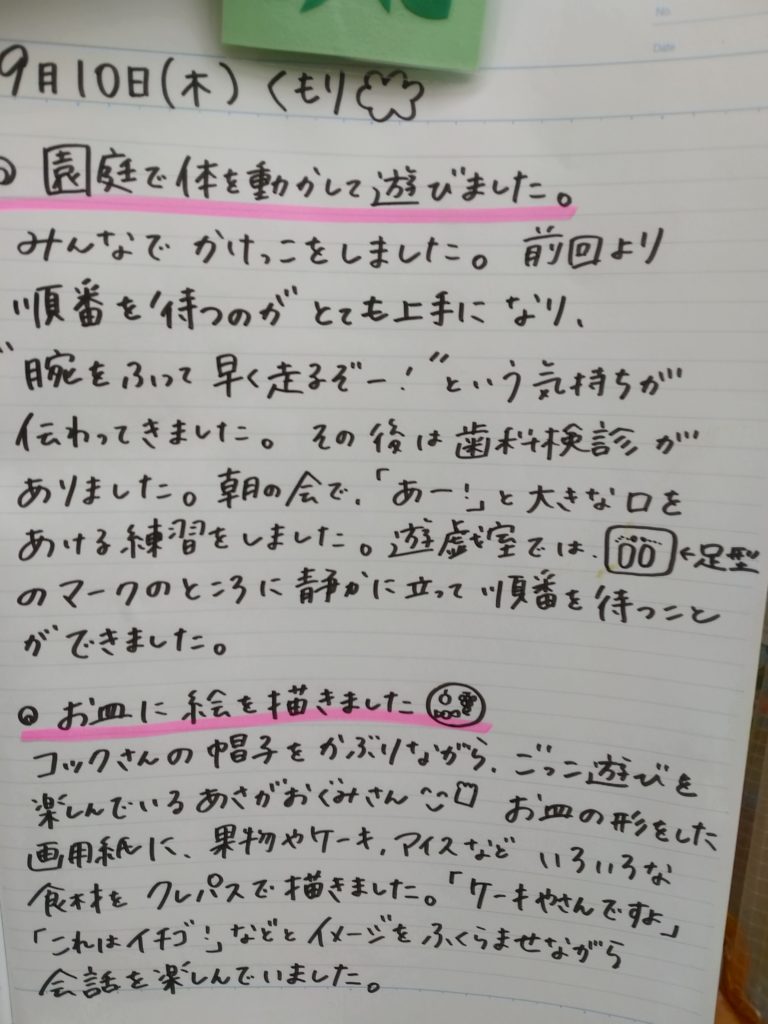 No.
Date
9月10日(木) くもり
園庭で体を動かして遊びました。
みんなで かけっこをしました。前回より
順番を待つのが とても上手に なり、
"腕をふって 早く走るぞー!"という気持ちが
伝わってきました。その後は歯科検診が
ありました。朝の会で、「あー!」と大きな口を
あける練習をしました。遊戯室では、00←足型
のマークのところに静かに立って順番を待つこと
ができました。
お皿に 絵を描きました
コックさんの帽子をかぶりながら、ごっこ遊びを
楽しんでいるあさがおぐみさん お皿の形をした
画用紙に、果物やケーキ、アイスなど いろいろな
食材を クレパスで描きました。「ケーキやさんですよ」
「これはイチゴ!」などとイメージをふくらませながら
会話を楽しんでいました。